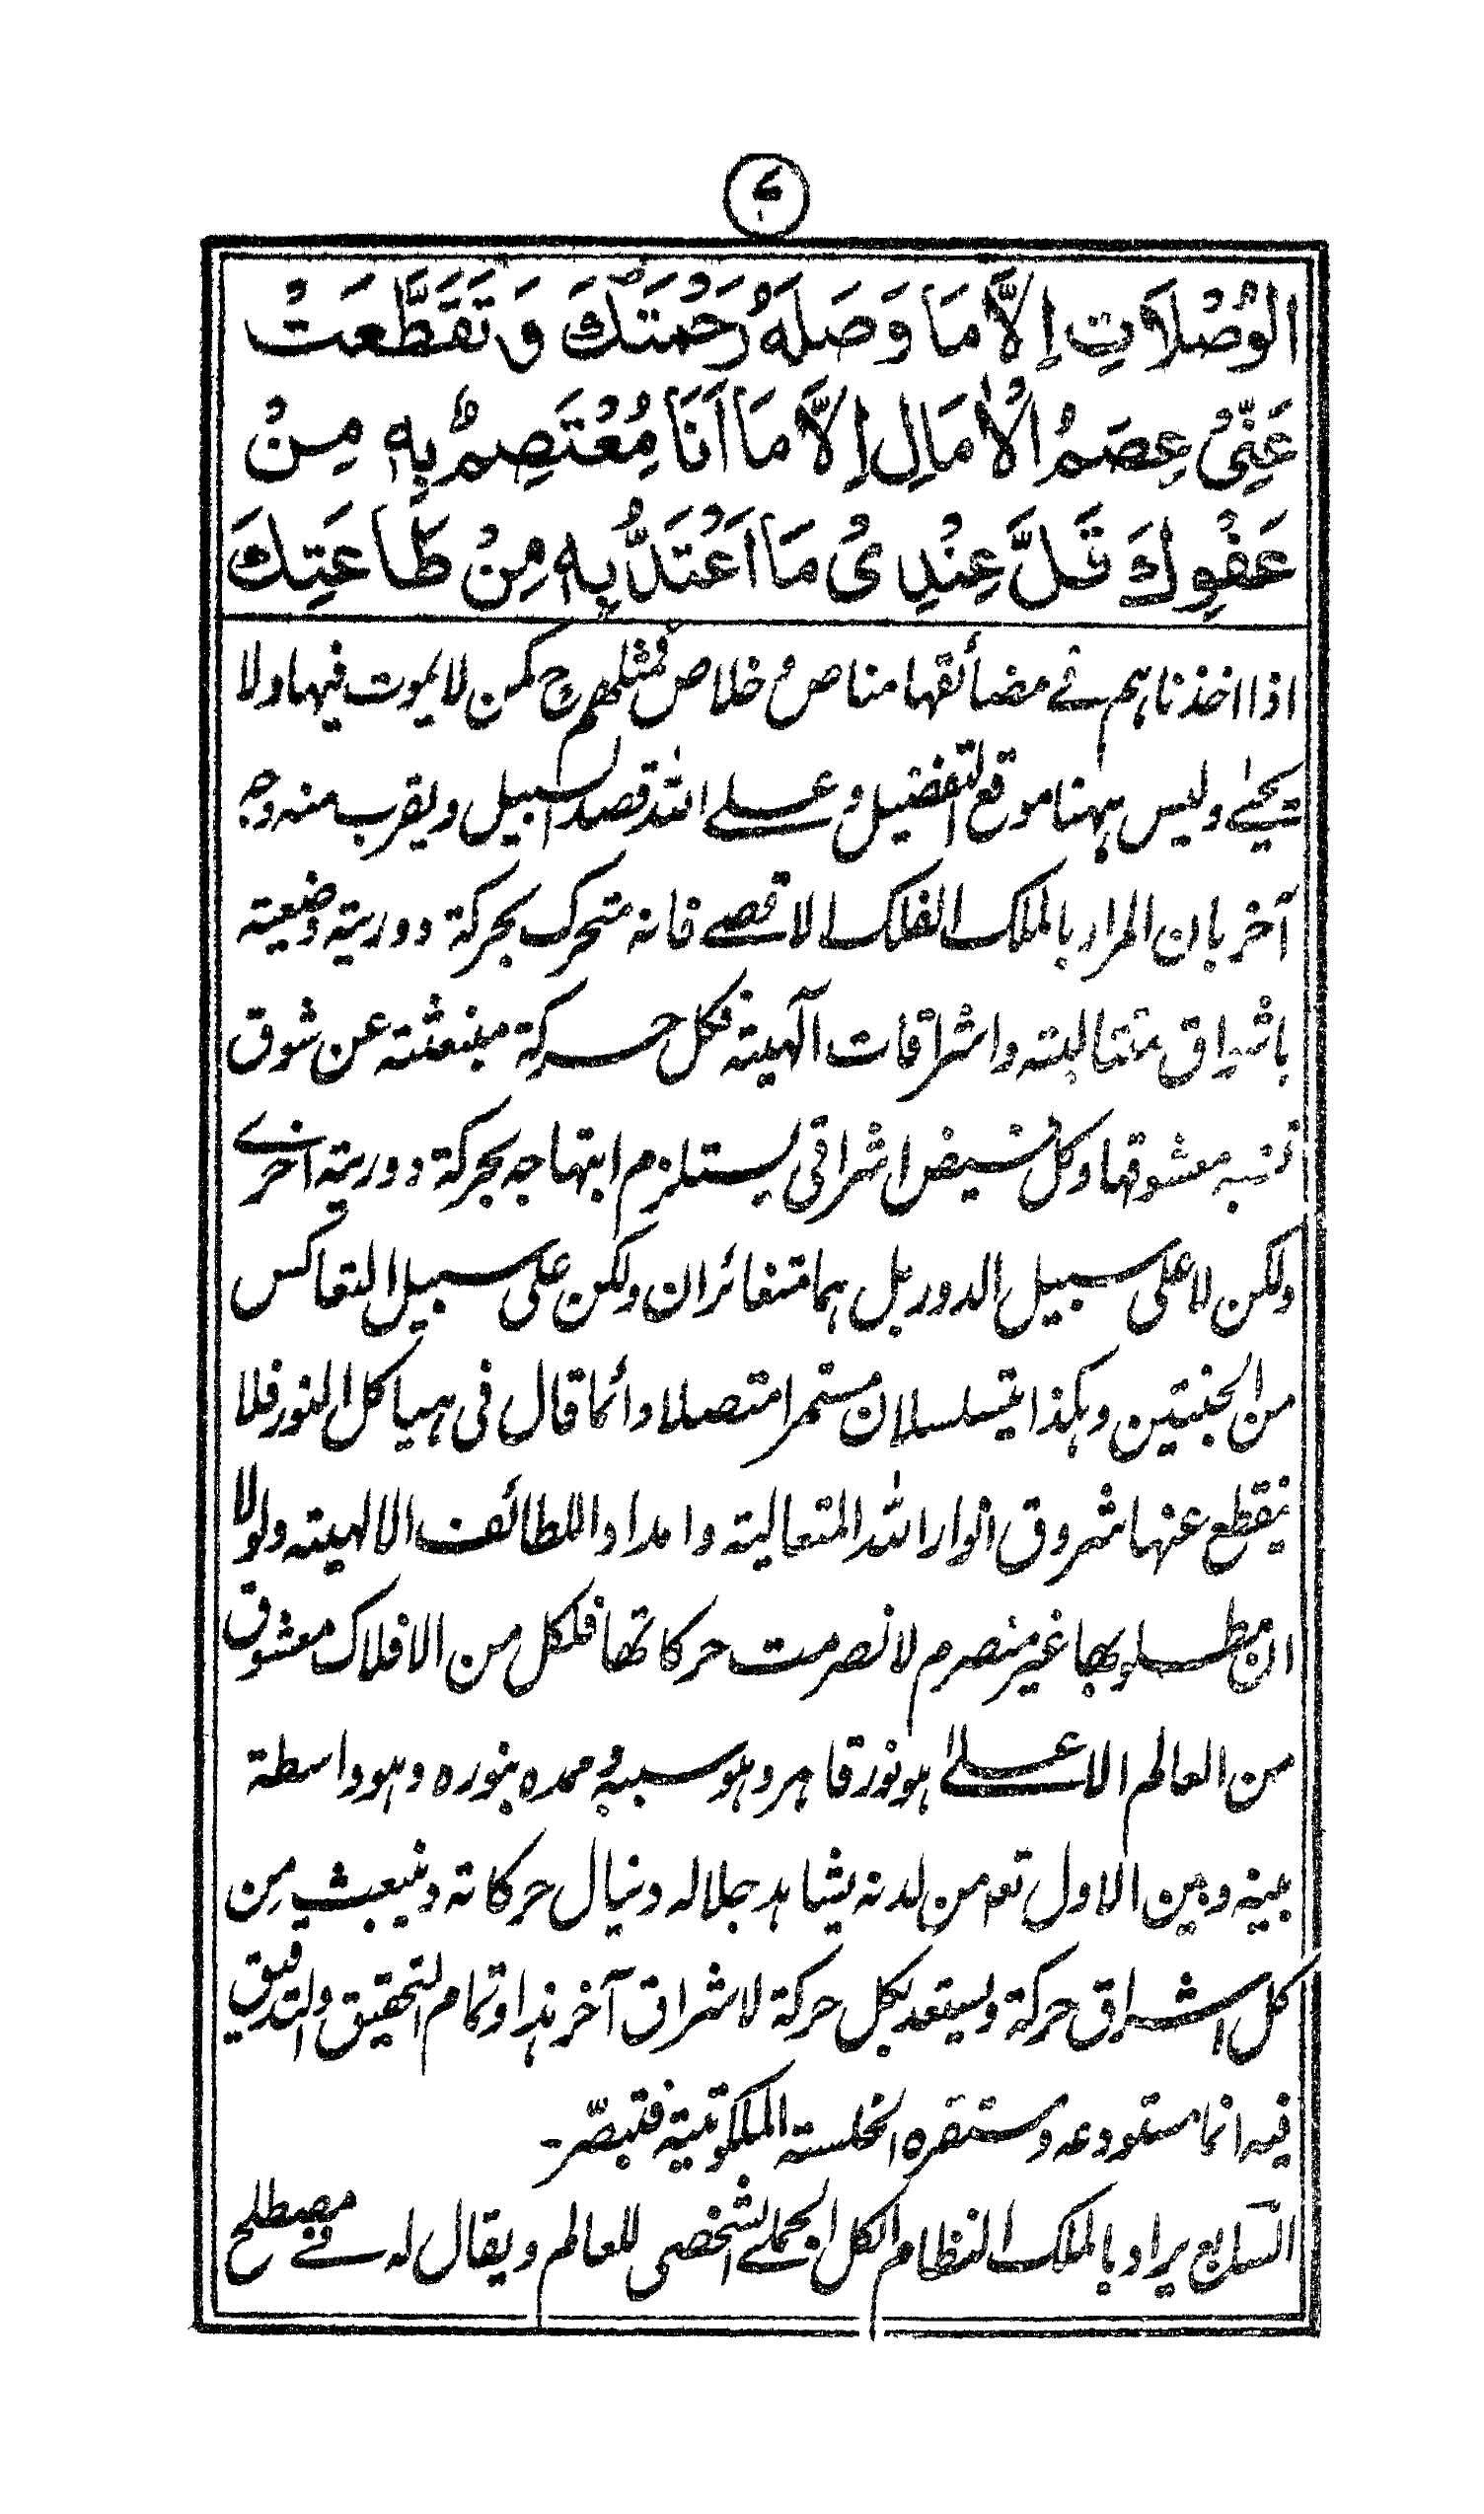 الْوُصْلَاتِ إِلَّا مَا وَصَلَهُ رَحْمَتُكَ وَتَقَطَّعَتْ
عَنِّيْ عِصَمُ الْاٰمَالِ إِلَّا مَا اَنَا مُعْتَصِمٌ بِهٖ مِنْ
عَفْوِكَ قَلَّ عِنْدِيْ مَا اَعْتَدُّ بِهٖ مِنْ طَاعَتِكَ
اذا اخذناہم فے مضائقہا مناص و خلاص فمثلہم ح کمن لا یموت فیہا ولا
یحیٰے ولیس ہہنا موقع التفضیل و علے اللہ قصد السبیل ویقرب منہ وجہ
آخر بان المراد بالملک الفلک الاقصے فانہ متحرک بحرکۃ دوریۃ وضعیتہ
باشراق متعالیتہ واشراقات آلہیتہ فکل حرکۃ منبعثتہ عن شوق
معشوقہا وکل فیض اشراقی یستلزم ابتہاجہ بحرکۃ دوریتہ اخرے
ولکن لا علی سبیل الدور بل ہما متغائران ولکن علی سبیل التعاکس
من الجنبتین وہکذا یتسلسلان مستمرا متصلا دائما قال فی ہیاکل النور فلا
ینقطع عنہا شروق انوار اللہ المتعالیتہ وامداد اللطائف الالہیتہ ولولا
ان مطلوبہا غیر منصرم لانصرمت حرکاتہا فلکل من الافلاک معشوق
من العالم الاعلےٰ ہو نور قاہر وہو سببہ وممدہ بنورہ وہو واسطۃ
بینہ وبین الاول تعہ من لدنہ یشاہد جلالہ وینال حرکاتہ وینبعث مِن
کل اشراق حرکۃ ویستعد بکل حرکۃ لاشراق آخر ہذا وتمام التحقیق والتدقیق
فیہ انما مستودعہ ومستقرہ الخلستہ الملکوتیۃ فتبصّر۔
السّابع یراد بالملک النظام الکل الجملے الشخصی للعالم ویقال لہ فے مصطلح